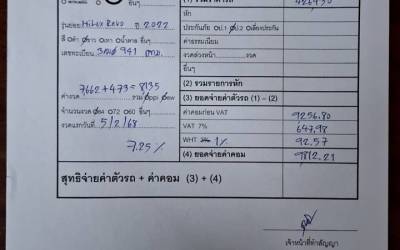 รุ่นย่อย Hilux Revo ปี 2022
สี ดำ ขาว เทา น้ำตาล อื่นๆ
เลขทะเบียน 941 กทม.
7662+473 = 8135
ค่างวด รวม ppi
จำนวนงวด 64 72 60 อื่นๆ
งวดแรกวันที่ 5/2/68
7.25%
หัก
ประกันภัย ป.1 ป.2
ค่าธรรมเนียม
งวดล่วงหน้า งวด
อื่นๆ
(2) รวมรายการหัก
(3) ยอดจ่ายค่าตัวรถ (1) - (2)
ค่าคอมก่อน VAT 9256.80
VAT 7% 647.98
WHT 1% 92.57
(4) ยอดจ่ายค่าคอม 9812.21
สุทธิจ่ายค่าตัวรถ + ค่าคอม (3) + (4)
เจ้าหน้าที่ทำสัญญา